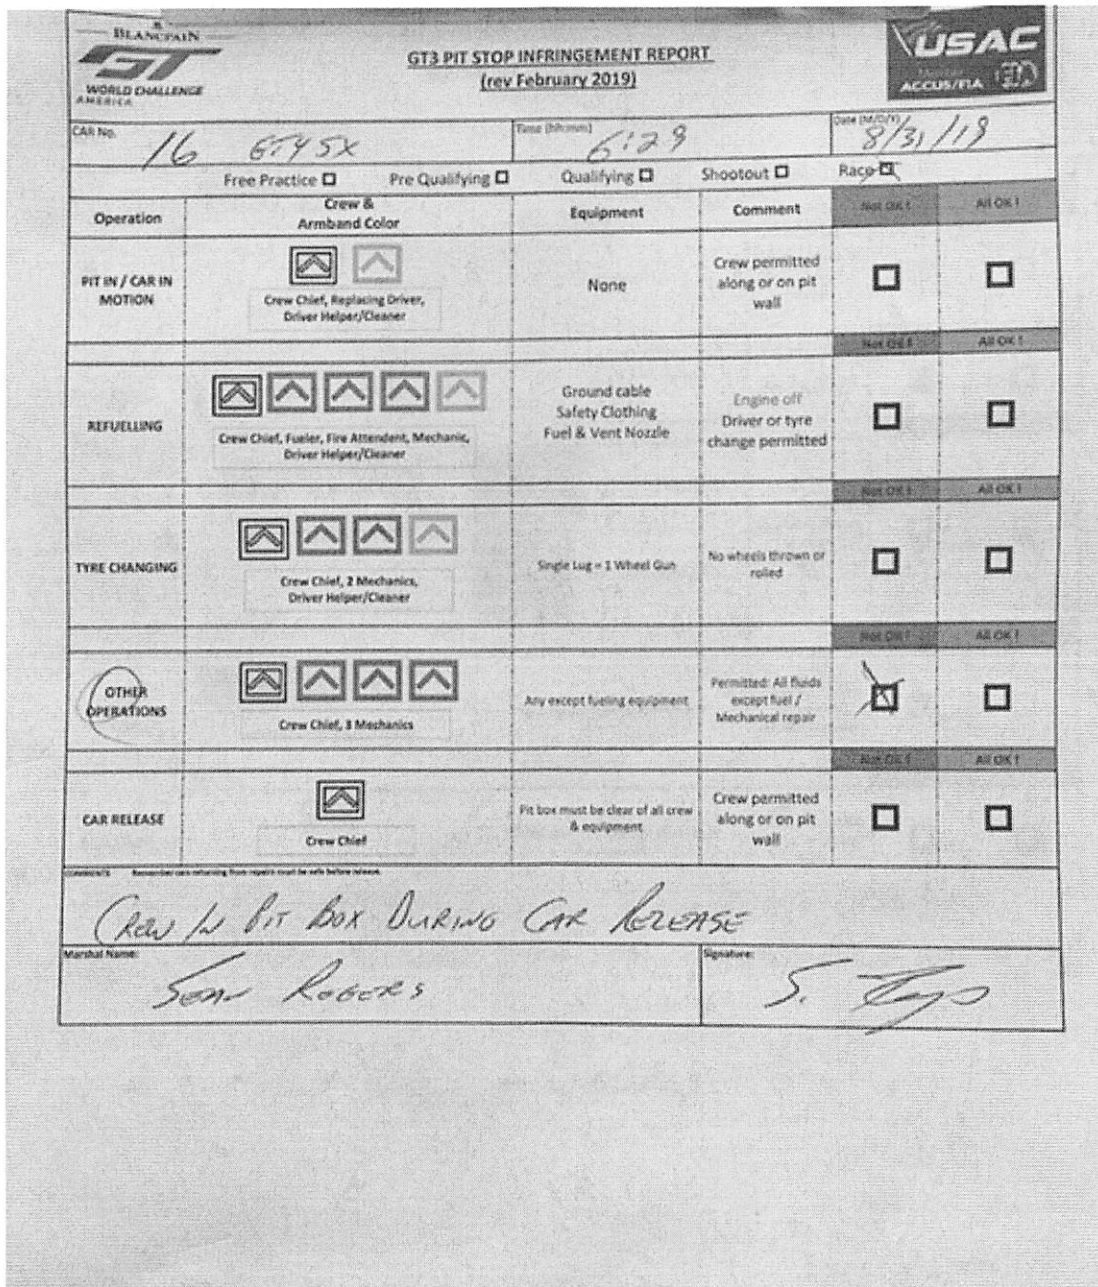 BLANCPAIN
GT
WORLD CHALLENGE
AMERICA
GT3 PIT STOP INFRINGEMENT REPORT
(rev February 2019)
USAC
ACCUS/FIA
CAR No.
16 GT4 SX
Time (hh:mm)
6:29
Date (M/D/Y)
8/31/19
Free Practice Pre Qualifying Qualifying Shootout Race
Operation
Crew &
Armband Color
Equipment
Comment
Not OK !
All OK !
PIT IN / CAR IN
MOTION
Crew Chief, Replacing Driver,
Driver Helper/Cleaner
None
Crew permitted
along or on pit
wall
Not OK !
All OK !
REFUELLING
Crew Chief, Fueler, Fire Attendent, Mechanic,
Driver Helper/Cleaner
Ground cable
Safety Clothing
Fuel & Vent Nozzle
Engine off
Driver or tyre
change permitted
Not OK !
All OK !
TYRE CHANGING
Crew Chief, 2 Mechanics,
Driver Helper/Cleaner
Single Lug = 1 Wheel Gun
No wheels thrown or
rolled
Not OK !
All OK !
OTHER
OPERATIONS
Crew Chief, 3 Mechanics
Any except fueling equipment
Permitted: All fluids
except fuel /
Mechanical repair
Not OK !
All OK !
CAR RELEASE
Crew Chief
Pit box must be clear of all crew
& equipment
Crew permitted
along or on pit
wall
COMMENTS Remember cars returning from repairs must be safe before release.
CREW IN PIT BOX DURING CAR RELEASE
Marshal Name:
SEAN ROGERS
Signature:
S.